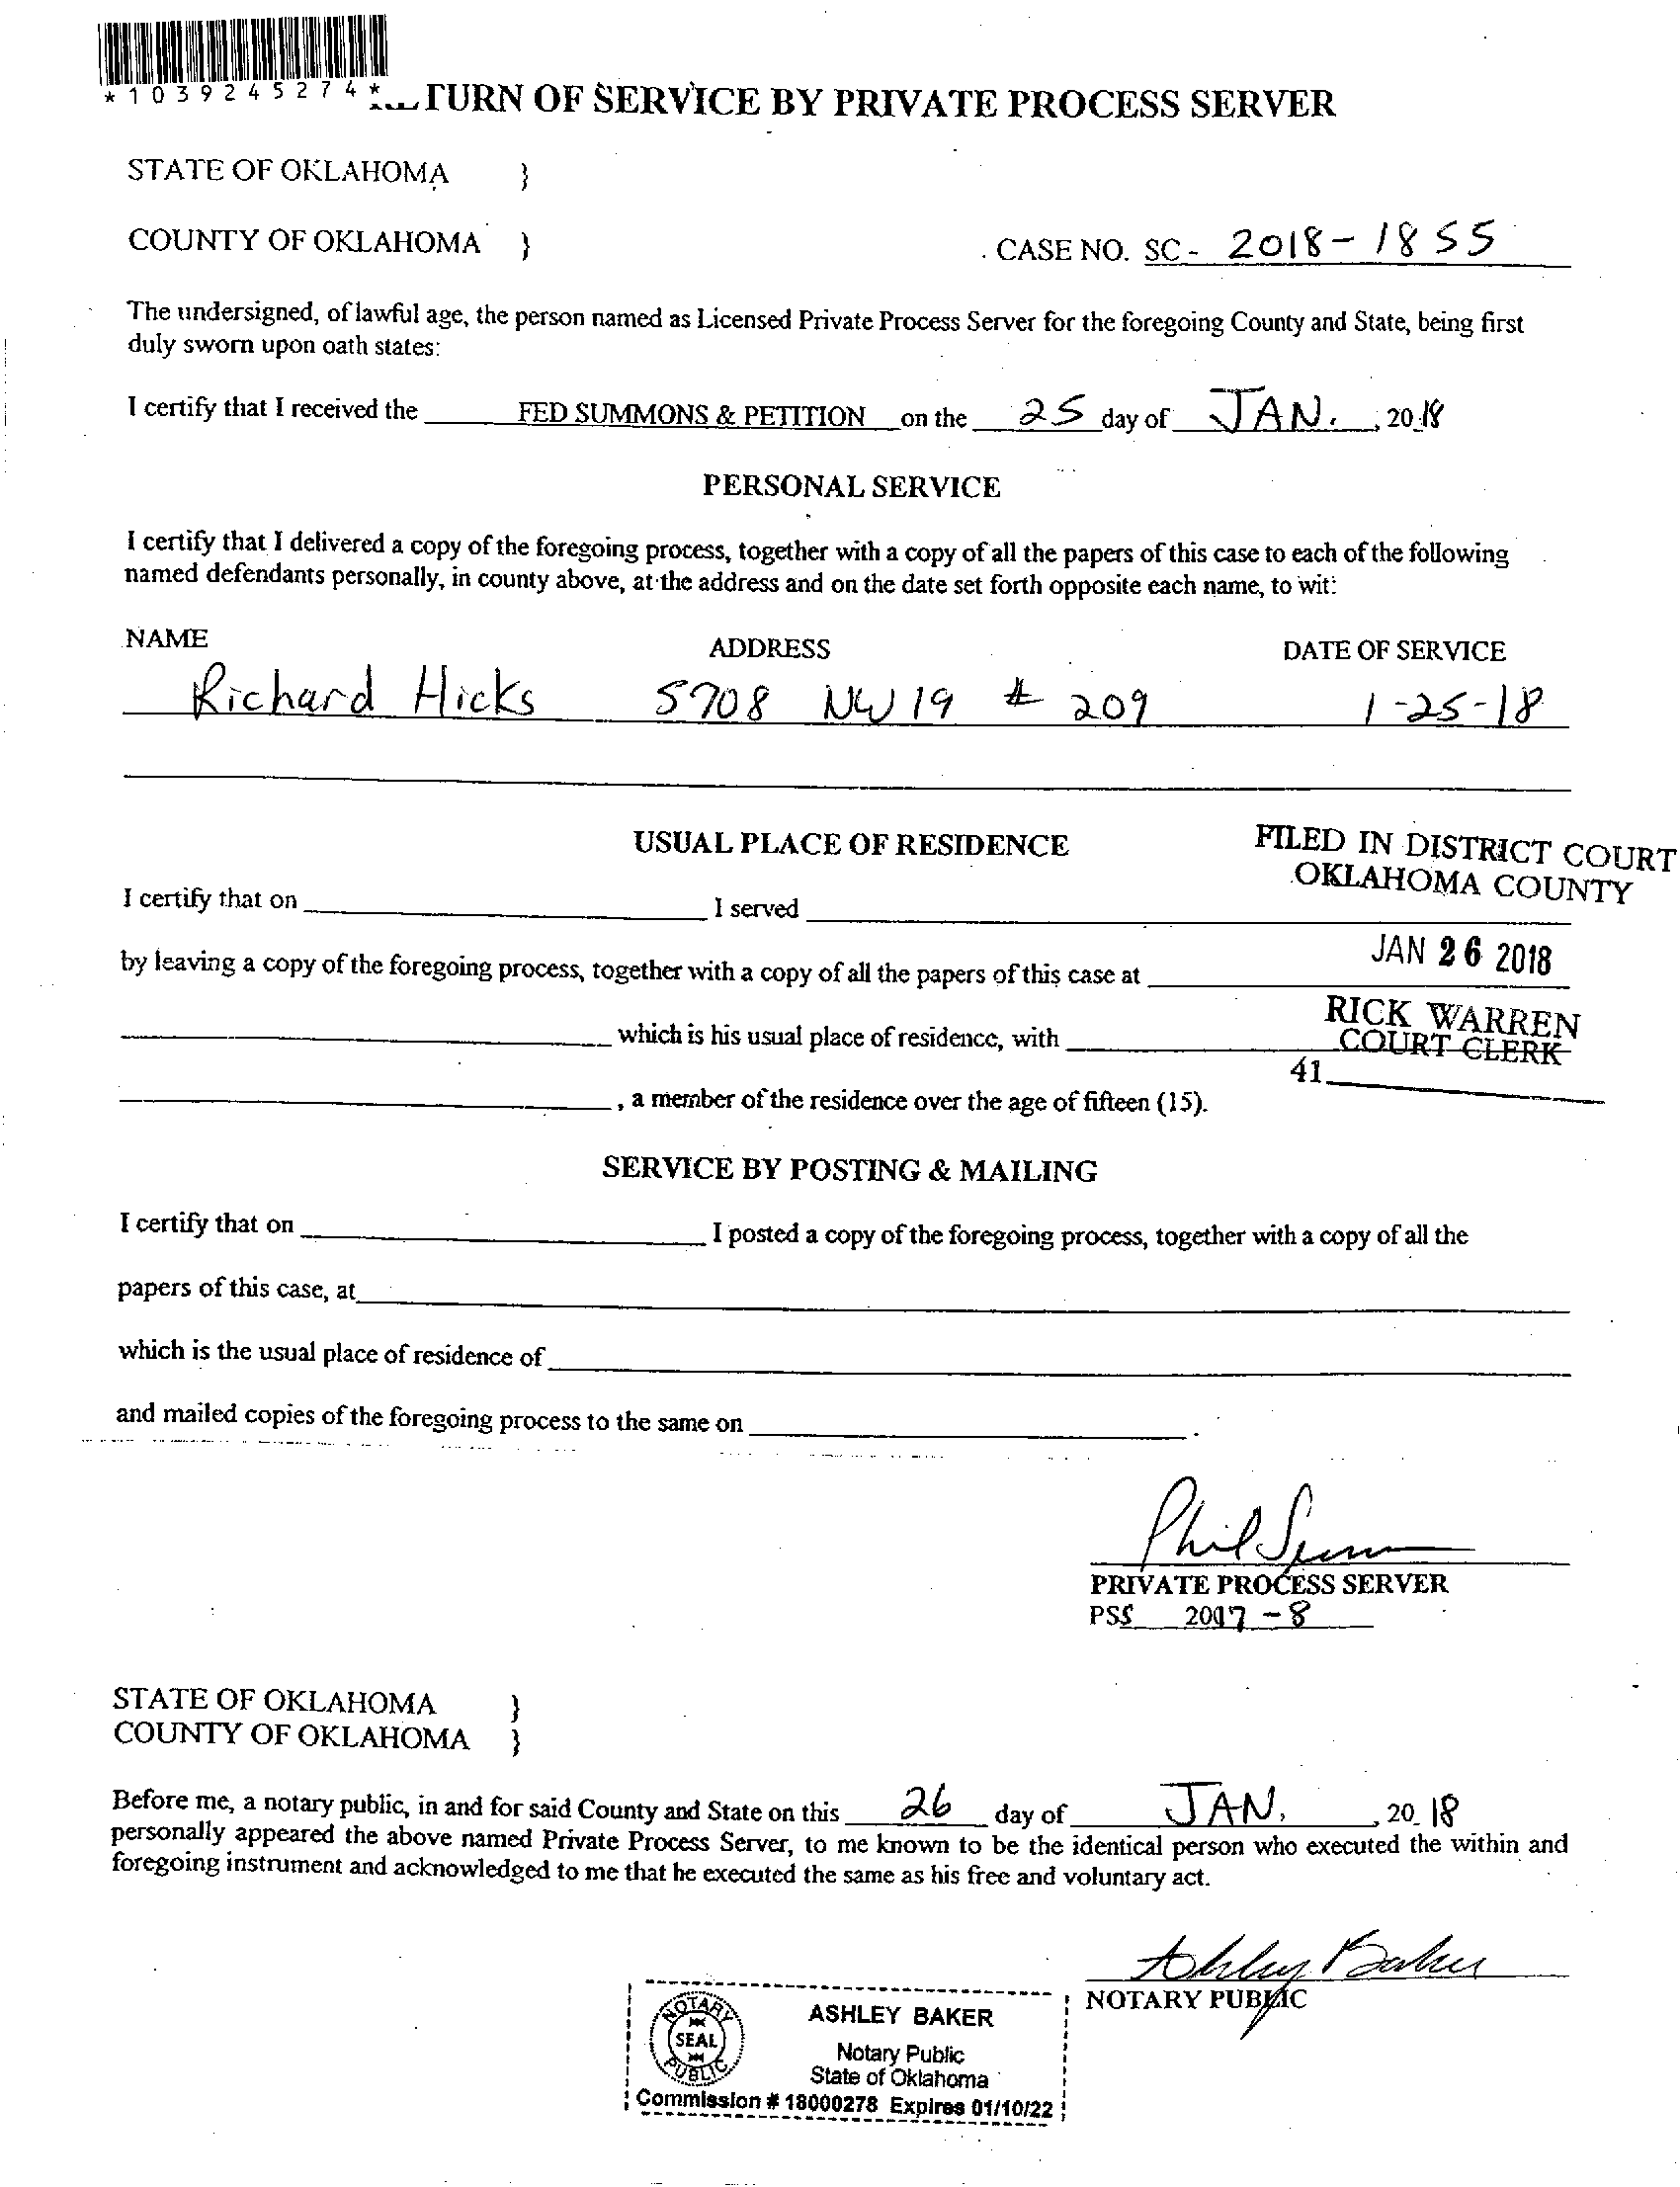 *1039245274*
TURN OF SERVICE BY PRIVATE PROCESS SERVER
STATE OF OKLAHOMA }
COUNTY OF OKLAHOMA } CASE NO. SC - 2018-1855
The undersigned, of lawful age, the person named as Licensed Private Process Server for the foregoing County and State, being first
duly sworn upon oath states:
I certify that I received the FED SUMMONS & PETITION on the 25 day of JAN. , 2018
PERSONAL SERVICE
I certify that I delivered a copy of the foregoing process, together with a copy of all the papers of this case to each of the following
named defendants personally, in county above, at the address and on the date set forth opposite each name, to wit:
NAME ADDRESS DATE OF SERVICE
Richard Hicks 5708 NW 19 # 209 1-25-18
USUAL PLACE OF RESIDENCE
FILED IN DISTRICT COURT
OKLAHOMA COUNTY
I certify that on I served
JAN 26 2018
by leaving a copy of the foregoing process, together with a copy of all the papers of this case at
RICK WARREN
COURT CLERK
which is his usual place of residence, with
41
, a member of the residence over the age of fifteen (15).
SERVICE BY POSTING & MAILING
I certify that on I posted a copy of the foregoing process, together with a copy of all the
papers of this case, at
which is the usual place of residence of
and mailed copies of the foregoing process to the same on .
Phil
PRIVATE PROCESS SERVER
PSS 2017-8
STATE OF OKLAHOMA }
COUNTY OF OKLAHOMA }
Before me, a notary public, in and for said County and State on this 26 day of JAN. , 20 18
personally appeared the above named Private Process Server, to me known to be the identical person who executed the within and
foregoing instrument and acknowledged to me that he executed the same as his free and voluntary act.
Ashley Baker
NOTARY PUBLIC
NOTARY SEAL PUBLIC
ASHLEY BAKER
Notary Public
State of Oklahoma
Commission # 18000278 Expires 01/10/22